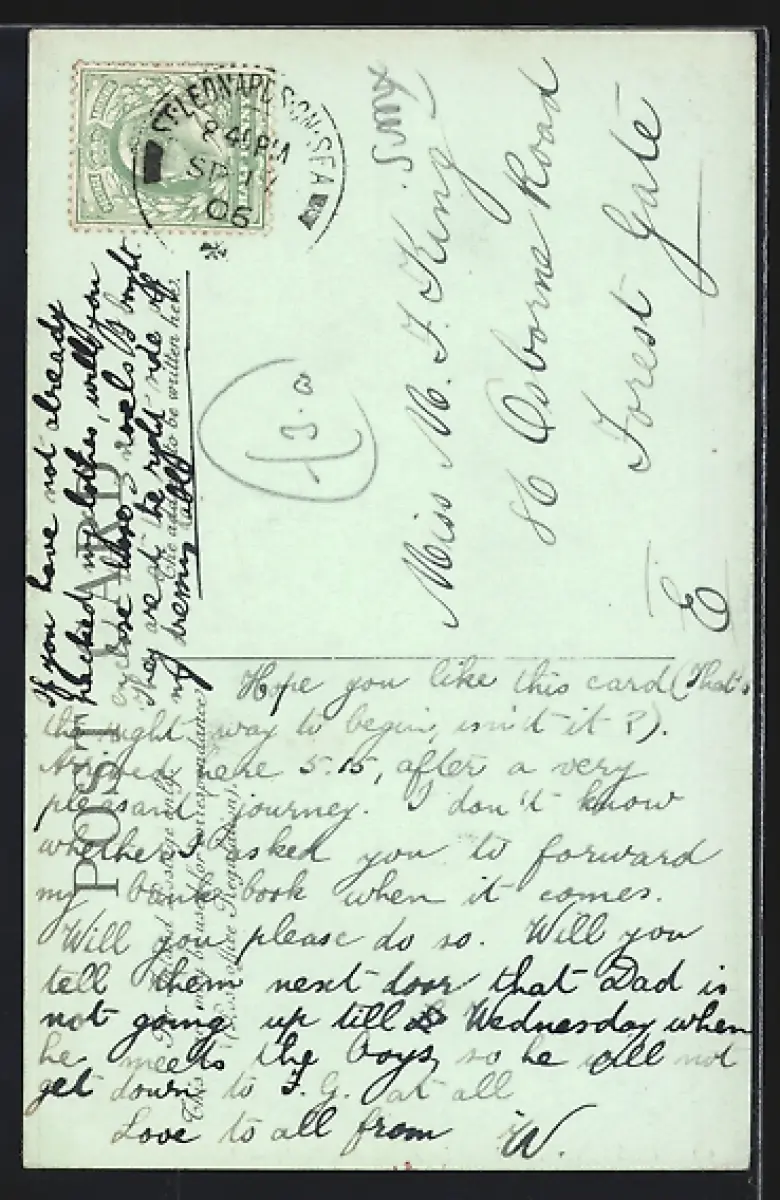 ST. LEONARDS-ON-SEA
8 40 PM
SP
06
Miss M. F. King
86 Osborne Road
Forest Gate
E
POST CARD
The address to be written here.
This may be used for correspondence
(Post Office Regulation).
Hope you like this card (That's
the right way to begin, isn't it?).
Arrived here 5.15, after a very
pleasant journey. I don't know
whether I asked you to forward
my bank book when it comes.
Will you please do so. Will you
tell them next door that Dad is
not going up till Wednesday when
he meets the boys, so he will not
get down to F. G. at all
Love to all from W.
If you have not already
packed my clothes, will you
enclose those I bought.
They are at the right side of
my